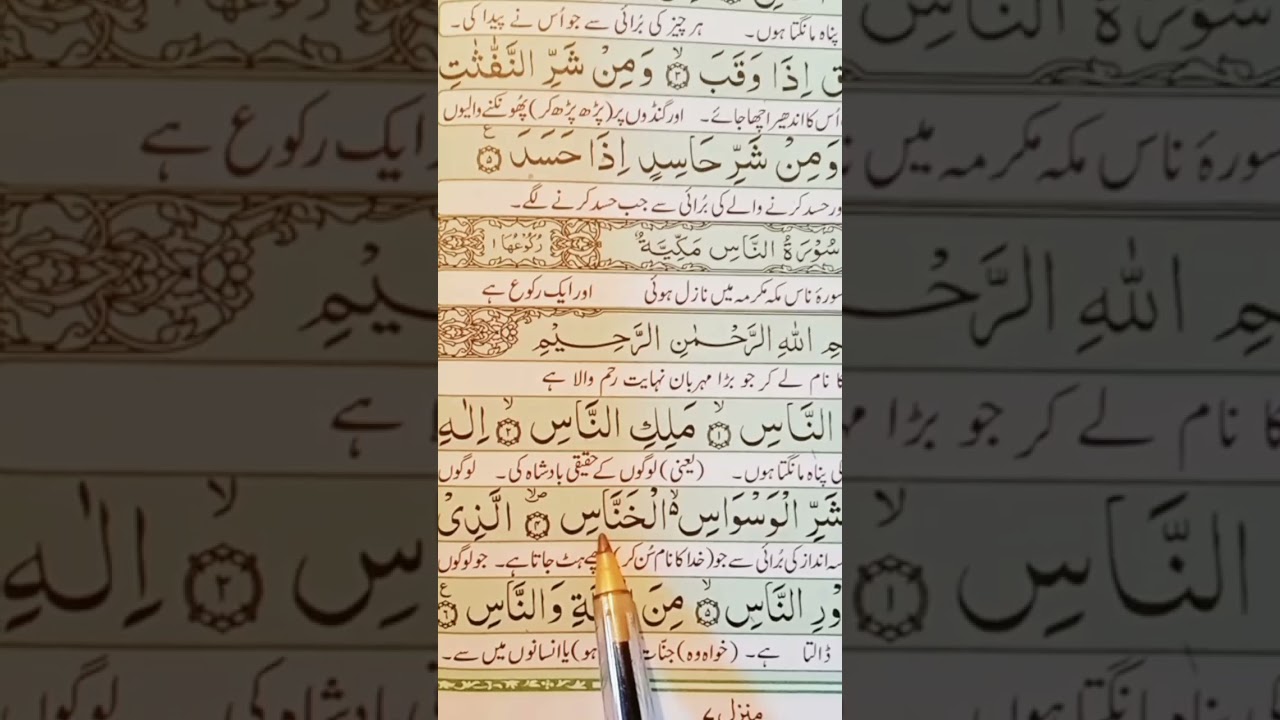 پناہ مانگتا ہوں۔ ہر چیز کی بُرائی سے جو اُس نے پیدا کی۔
اِذَا وَقَبَ ۙ﴿۳﴾ وَمِنْ شَرِّ النَّفّٰثٰتِ
اُس کا اندھیرا چھا جائے۔ اور گنڈوں پر (پڑھ پڑھ کر) پھُونکنے والیوں
وَمِنْ شَرِّ حَاسِدٍ اِذَا حَسَدَ ﴿۵﴾ ع
ور حسد کرنے والے کی بُرائی سے جب حسد کرنے لگے۔
سُوْرَةُ النَّاسِ مَكِّيَّةٌ رُكُوْعُهَا ۱
سورۂ ناس مکہ مکرمہ میں نازل ہوئی اور ایک رکوع ہے
اللّٰهِ الرَّحْمٰنِ الرَّحِيْمِ
کا نام لے کر جو بڑا مہربان نہایت رحم والا ہے
النَّاسِ ۙ﴿۱﴾ مَلِكِ النَّاسِ ۙ﴿۲﴾ اِلٰهِ
کی پناہ مانگتا ہوں۔ (یعنی) لوگوں کے حقیقی بادشاہ کی۔ لوگوں
شَرِّ الْوَسْوَاسِ ۙ۬ الْخَنَّاسِ ۪ۙ﴿۴﴾ الَّذِىْ
انداز کی بُرائی سے جو (خدا کا نام سُن کر) ہٹ جاتا ہے۔ جو لوگوں
النَّاسِ ۙ﴿۵﴾ مِنَ وَالنَّاسِ ﴿۶﴾ ع
ڈالتا ہے۔ (خواہ وہ) جنّات ہو) یا انسانوں میں سے۔
منزل ۷